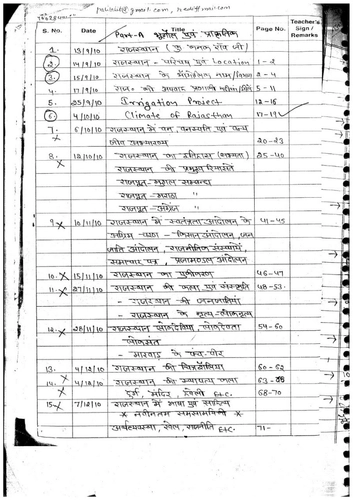 S. No. Date Title Page No. Teacher's Sign / Remarks
Part-A भूगोल एवं प्राकृतिक
1. 13/9/10 राजस्थान
2. 14/9/10 राजस्थान - परिचय एवं Location 1-2
3. 15/9/10 राजस्थान के 2-4
4. 17/9/10 राज० की अपवाह प्रणाली 5-11
5. 25/9/10 Irrigation Project 12-16
6. 4/10/10 Climate of Rajasthan 17-19
7. 5/10/10 राजस्थान में वन, वनस्पति एवं वन्य
जीव अभयारण्य 20-23
8. 12/10/10 राजस्थान का इतिहास 25-40
राजस्थान की प्रमुख रियासतें
राजपूत-मुग़ल सम्बन्ध
राजपूत-मराठा "
राजपूत-अंग्रेज "
9. 10/11/10 राजस्थान में स्वतंत्रता आन्दोलन के 41-45
किसान आंदोलन, जन
जाति आंदोलन, राजनीतिक संस्थाएँ
समाचार पत्र, प्रजामण्डल आंदोलन
10. 15/11/10 राजस्थान का एकीकरण 46-47
11. 27/11/10 राजस्थान की कला एवं संस्कृति 48-53
- राजस्थान की जनजातियां
- राजस्थान के नृत्य-लोकनृत्य
12. 28/11/10 राजस्थान लोकदेवियां लोकदेवता 54-60
लोकसंत
- मारवाड़ के पंच पीर
13. 4/12/10 राजस्थान की चित्रशैलियां 60-62
14. 4/12/10 राजस्थान की स्थापत्य कला 63-68
दुर्ग, मंदिर, हवेली Etc. 68-70
15. 7/12/10 राजस्थान में भाषा एवं साहित्य
* नवीनतम समसामयिकी *
अर्थव्यवस्था, खेल, राजनीति Etc. 71-